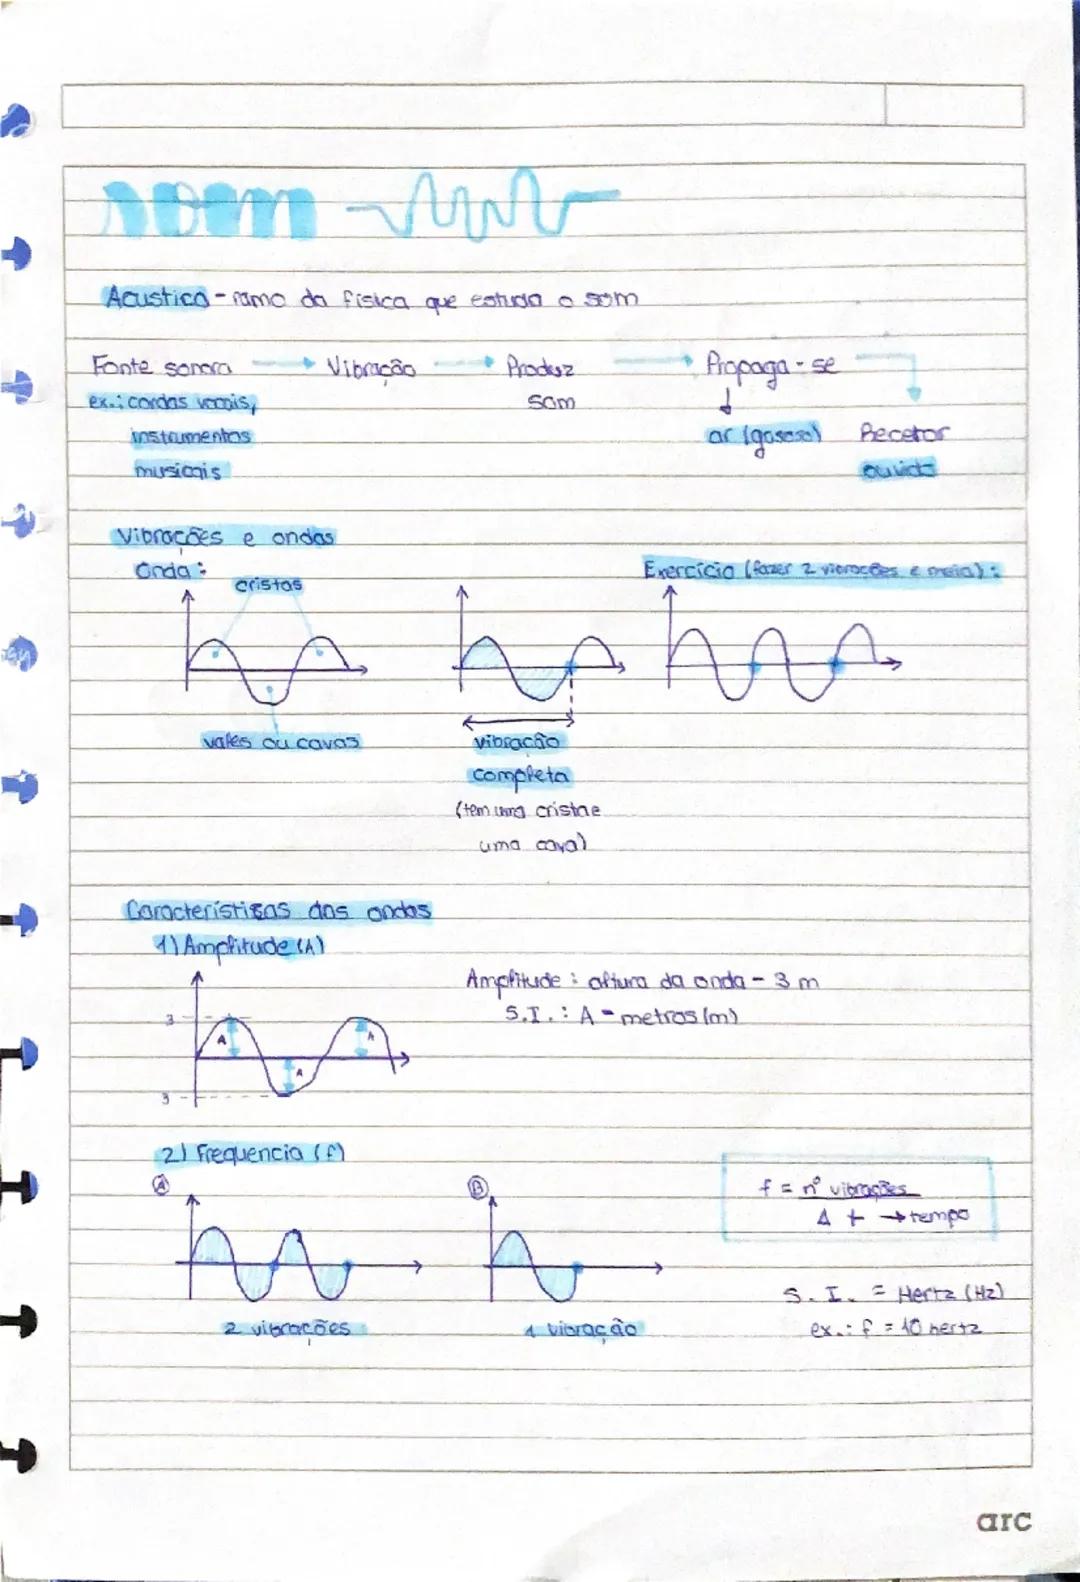 som
Acustica - ramo da física que estuda o som
Fonte sonora → Vibração → Produz → Propaga-se
ex.: cordas vocais, som ↓
instrumentos ar (gasoso) Recetor
musicais ouvido
Vibrações e ondas
Onda: Exercício (fazer 2 vibracões e meia):
cristas
vales ou cavas vibração
completa
(tem uma crista e
uma cava)
Características das ondas
1) Amplitude (A)
Amplitude: altura da onda - 3 m
S.I.: A - metros (m)
3
A A
A
3
2) Frequencia (f)
A B
f = nº vibrações
Δ t → tempo
S.I. = Hertz (Hz)
2 vibrações 1 vibração ex.: f = 10 hertz
arc